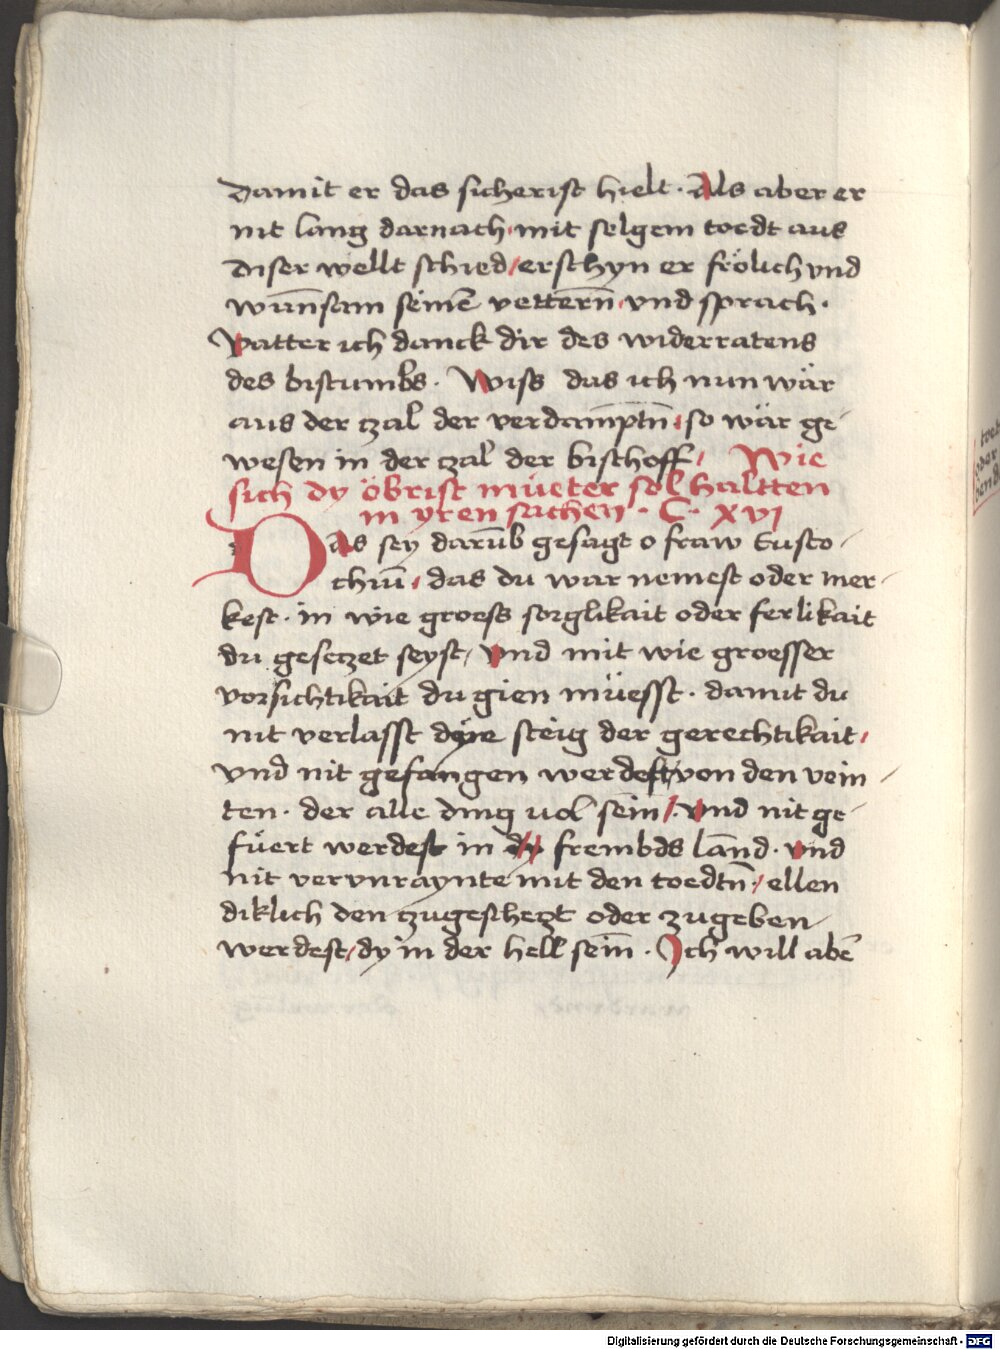 damit er das sicherist hielt · Als aber er
nit lang darnach mit selgem toedt aus
diser wellt schied / erschyn er frölich vnd
wun̄sam seinē vettern̄ vnd sprach ·
Vatter ich danck dir des widerratens
des bistumbs · Wiss das ich nun wär
aus der zal der verdamptn̄ / so wär ge-
wesen in der zal der bischoff / Wie
sich dy öbrist mueter sol haltten
in yren sachen · C · XVI
Das sey darūb gesagt o fraw Eusto-
chiū / das du war nemest oder mer-
kest · in wie groess sorglikait oder ferlikait
du gesetzet seyst / vnd mit wie groesser
vorsichtikait du gien müesst · damit du
nit verlasst dye steig der gerechtikait /
vnd nit gefangen werdest / von den vein-
ten · der alle ding vol sein̄ / · vnd nit ge-
füert werdest in dy frembds lannd · vnd
nit vervnraynte mit den toedtn̄ / ellen
diklich den zugeschetzt oder zugeben
werdest / dy in der hell sein̄ · Ich will abē
toet
oder